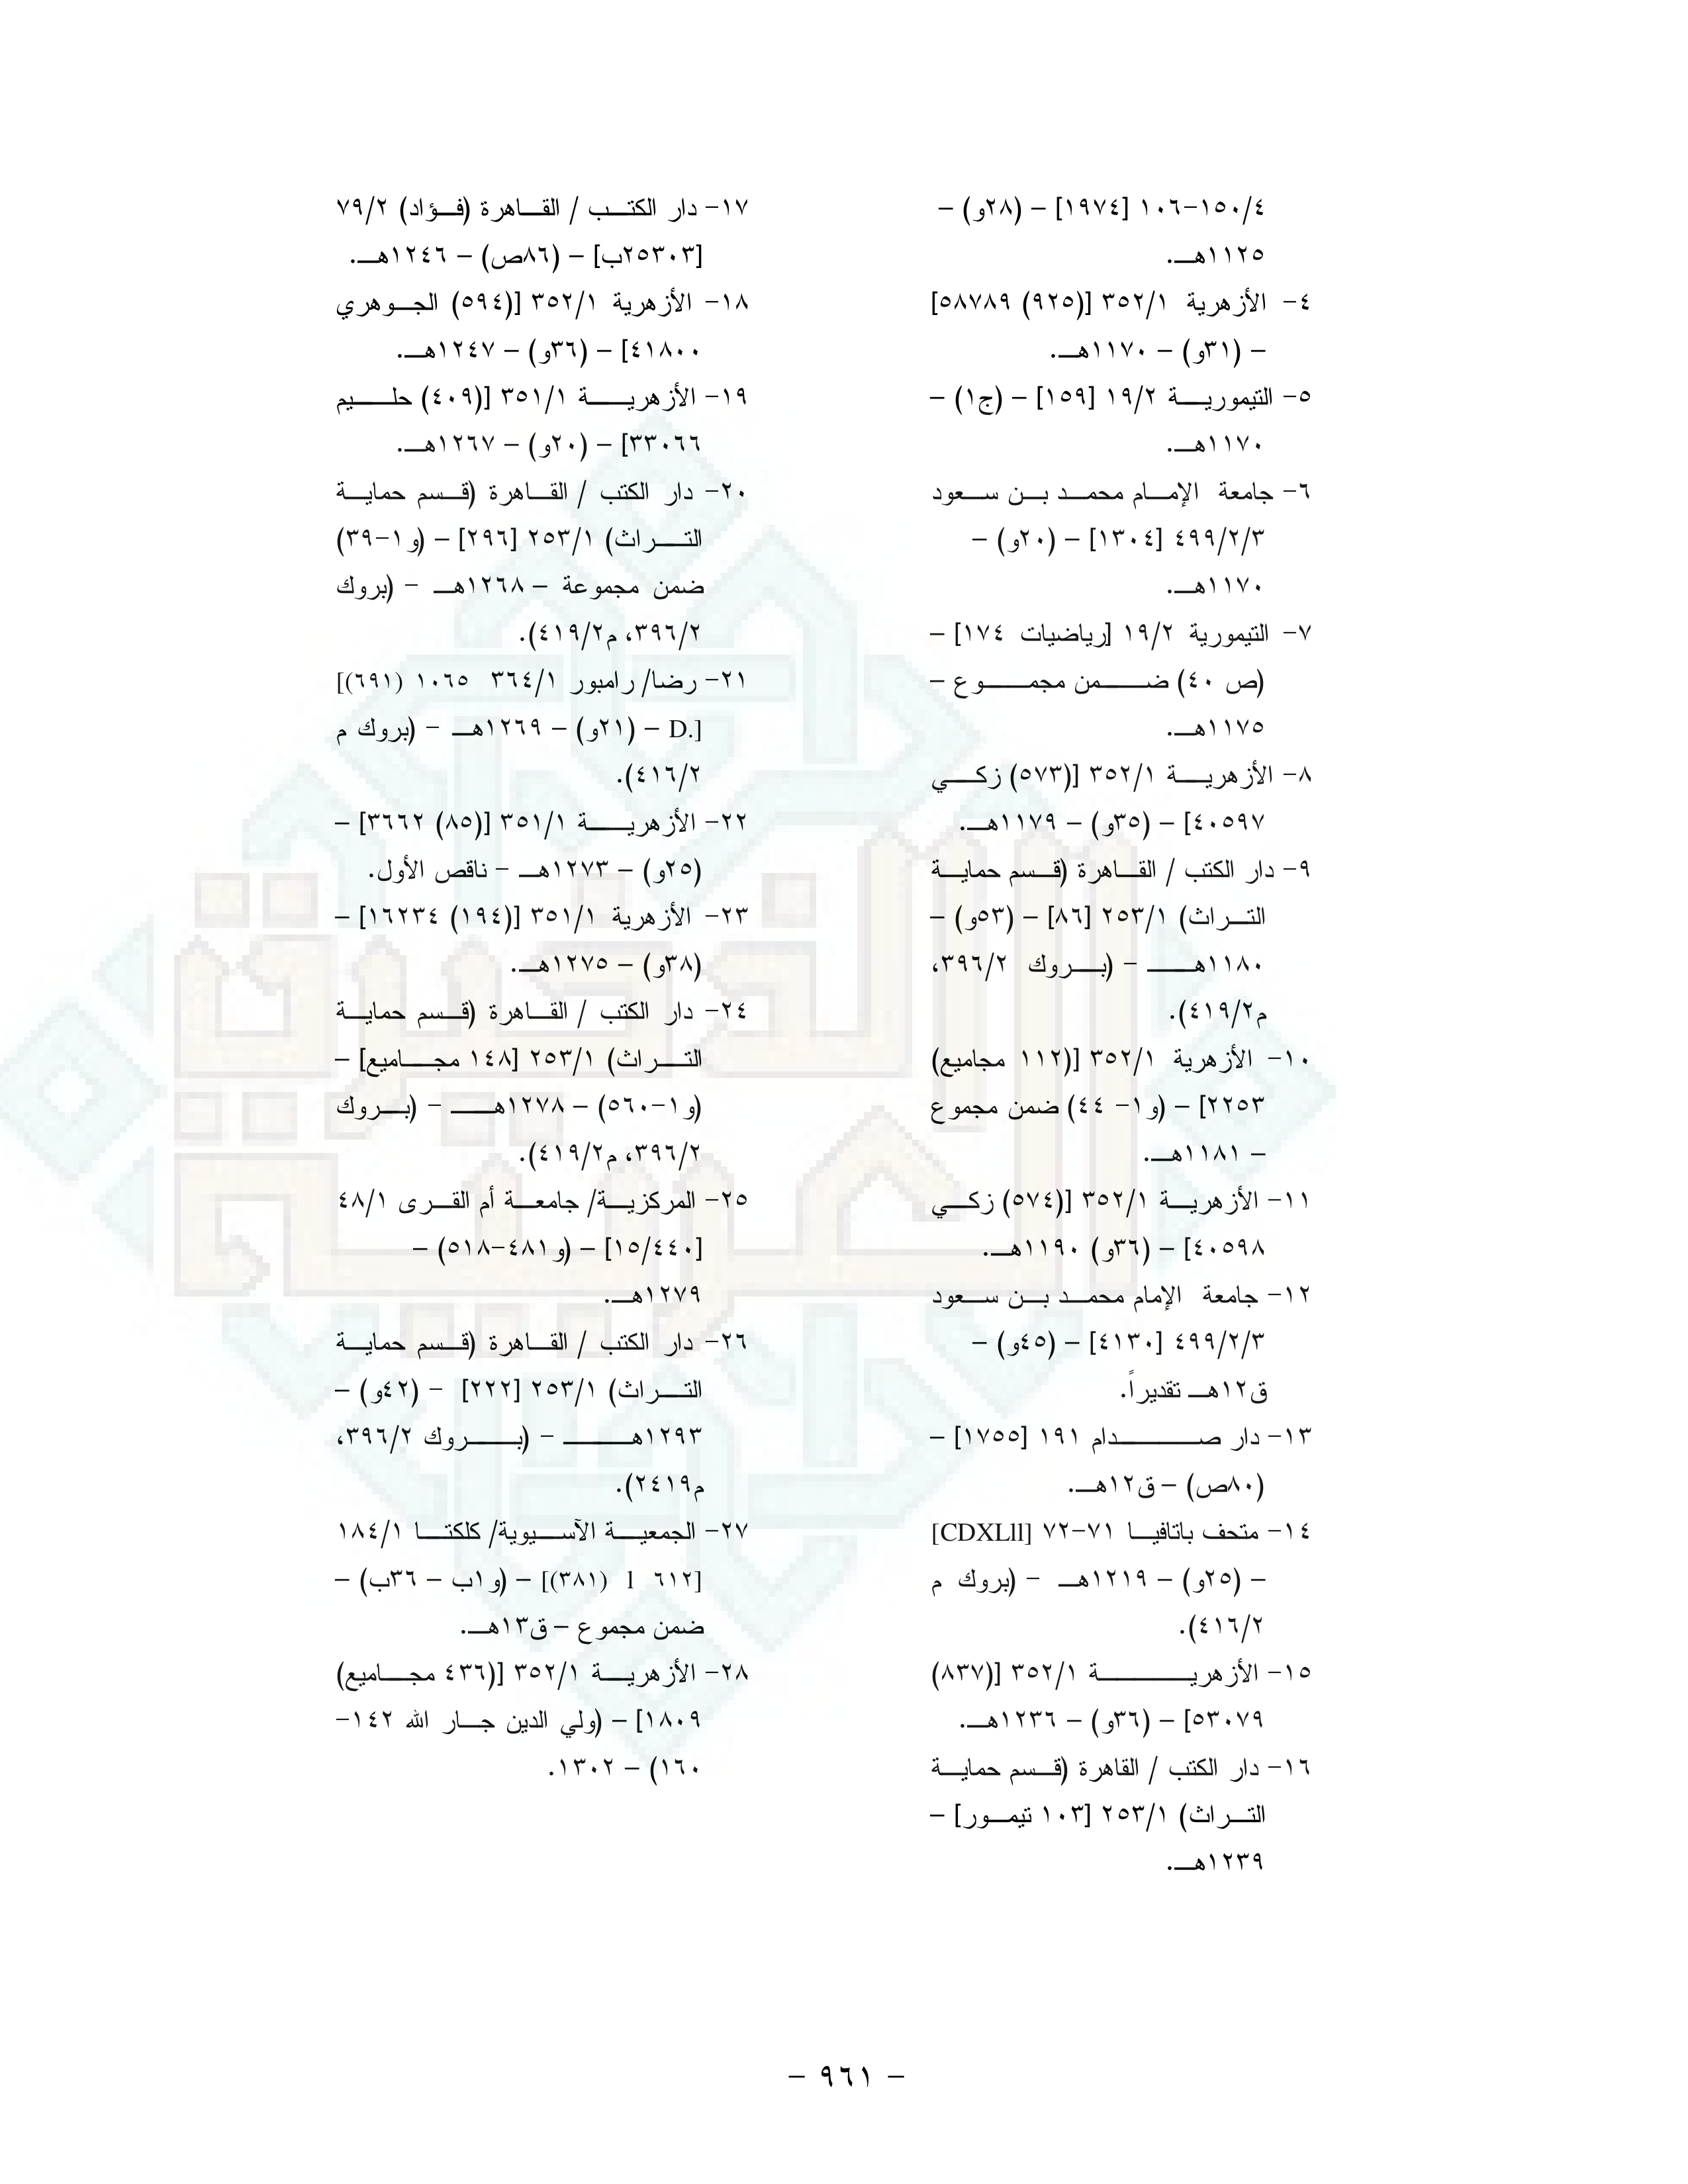 ٤/١٥٠-١٠٦ [١٩٧٤] – (٢٨و) –
١١٢٥هـ.
٤- الأزهرية ٣٥٢/١ [(٩٢٥) ٥٨٧٨٩]
– (٣١و) – ١١٧٠هـ.
٥- التيمورية ١٩/٢ [١٥٩] – (ج١) –
١١٧٠هـ.
٦- جامعة الإمام محمد بن سعود
٤٩٩/٢/٣ [١٣٠٤] – (٢٠و) –
١١٧٠هـ.
٧- التيمورية ١٩/٢ [رياضيات ١٧٤] –
(ص ٤٠) ضمن مجموع –
١١٧٥هـ.
٨- الأزهرية ٣٥٢/١ [(٥٧٣) زكي
٤٠٥٩٧] – (٣٥و) – ١١٧٩هـ.
٩- دار الكتب / القاهرة (قسم حماية
التراث) ٢٥٣/١ [٨٦] – (٥٣و) –
١١٨٠هـ – (بروك ٣٩٦/٢،
م٤١٩/٢).
١٠- الأزهرية ٣٥٢/١ [(١١٢ مجاميع)
٢٢٥٣] – (و١- ٤٤) ضمن مجموع
– ١١٨١هـ.
١١- الأزهرية ٣٥٢/١ [(٥٧٤) زكي
٤٠٥٩٨] – (٣٦و) ١١٩٠هـ.
١٢- جامعة الإمام محمد بن سعود
٤٩٩/٢/٣ [٤١٣٠] – (٤٥و) –
ق١٢هـ تقديراً.
١٣- دار صدام ١٩١ [١٧٥٥] –
(٨٠ص) – ق١٢هـ.
١٤- متحف باتافيا ٧١-٧٢ [CDXLll]
– (٢٥و) – ١٢١٩هـ – (بروك م
٤١٦/٢).
١٥- الأزهرية ٣٥٢/١ [(٨٣٧)
٥٣٠٧٩] – (٣٦و) – ١٢٣٦هـ.
١٦- دار الكتب / القاهرة (قسم حماية
التراث) ٢٥٣/١ [١٠٣ تيمور] –
١٢٣٩هـ.
١٧- دار الكتب / القاهرة (فؤاد) ٧٩/٢
[٢٥٣٠٣ب] – (٨٦ص) – ١٢٤٦هـ.
١٨- الأزهرية ٣٥٢/١ [(٥٩٤) الجوهري
٤١٨٠٠] – (٣٦و) – ١٢٤٧هـ.
١٩- الأزهرية ٣٥١/١ [(٤٠٩) حليم
٣٣٠٦٦] – (٢٠و) – ١٢٦٧هـ.
٢٠- دار الكتب / القاهرة (قسم حماية
التراث) ٢٥٣/١ [٢٩٦] – (و١-٣٩)
ضمن مجموعة – ١٢٦٨هـ – (بروك
٣٩٦/٢، م٤١٩/٢).
٢١- رضا/ رامبور ٣٦٤/١ ١٠٦٥ (٦٩١)]
[.D – (٢١و) – ١٢٦٩هـ – (بروك م
٤١٦/٢).
٢٢- الأزهرية ٣٥١/١ [(٨٥) ٣٦٦٢] –
(٢٥و) – ١٢٧٣هـ – ناقص الأول.
٢٣- الأزهرية ٣٥١/١ [(١٩٤) ١٦٢٣٤] –
(٣٨و) – ١٢٧٥هـ.
٢٤- دار الكتب / القاهرة (قسم حماية
التراث) ٢٥٣/١ [١٤٨ مجاميع] –
(و١-٥٦٠) – ١٢٧٨هـ – (بروك
٣٩٦/٢، م٤١٩/٢).
٢٥- المركزية/ جامعة أم القرى ٤٨/١
[١٥/٤٤٠] – (و٤٨١-٥١٨) –
١٢٧٩هـ.
٢٦- دار الكتب / القاهرة (قسم حماية
التراث) ٢٥٣/١ [٢٢٢] – (٤٢و) –
١٢٩٣هـ – (بروك ٣٩٦/٢،
م٢٤١٩).
٢٧- الجمعية الآسيوية/ كلكتا ١٨٤/١
[٦١٢ l (٣٨١)] – (و١ب – ٣٦ب) –
ضمن مجموع – ق١٣هـ.
٢٨- الأزهرية ٣٥٢/١ [(٤٣٦ مجاميع)
١٨٠٩] – (ولي الدين جار الله ١٤٢-
١٦٠) – ١٣٠٢.
– ٩٦١ –